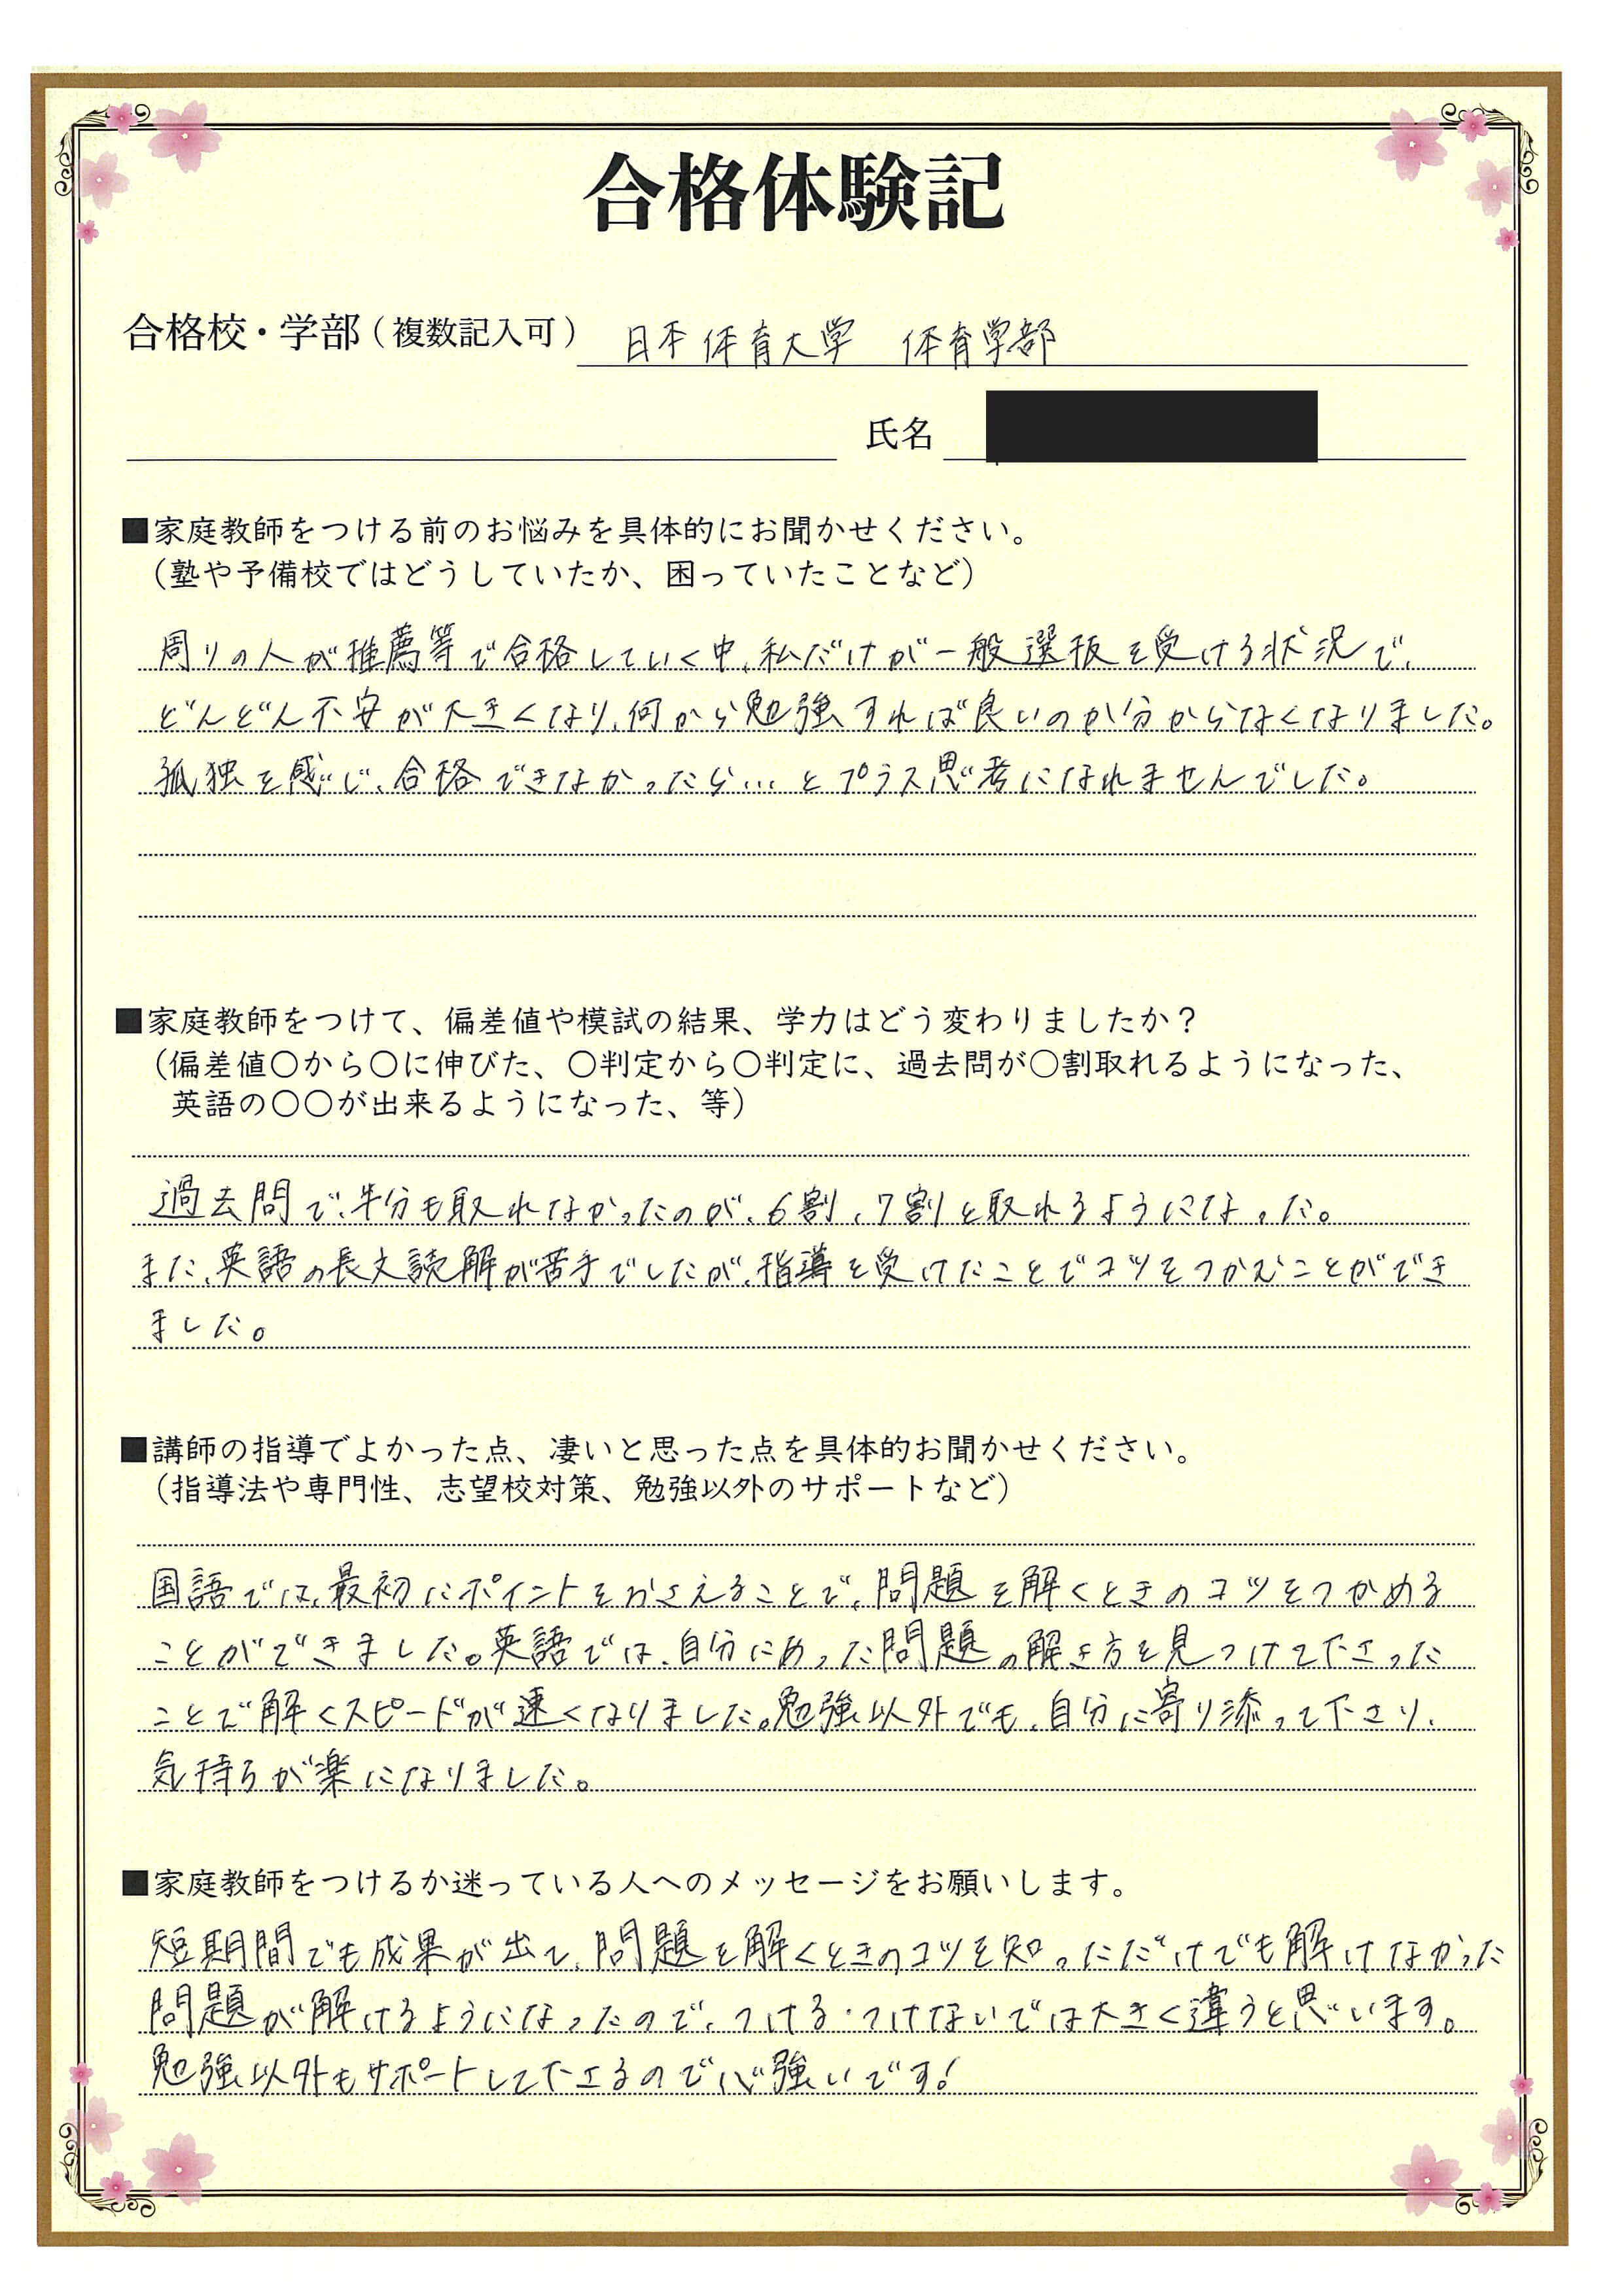 合格体験記
合格校・学部（複数記入可） 日本体育大学 体育学部
氏名
■家庭教師をつける前のお悩みを具体的にお聞かせください。
（塾や予備校ではどうしていたか、困っていたことなど）
周りの人が推薦等で合格していく中、私だけが一般選抜を受ける状況で、
どんどん不安が大きくなり、何から勉強すれば良いのか分からなくなりました。
孤独を感じ、合格できなかったら…とプラス思考になれませんでした。
■家庭教師をつけて、偏差値や模試の結果、学力はどう変わりましたか？
（偏差値〇から〇に伸びた、〇判定から〇判定に、過去問が〇割取れるようになった、
英語の〇〇が出来るようになった、等）
過去問で、半分も取れなかったのが、6割、7割と取れるようになった。
また、英語の長文読解が苦手でしたが、指導を受けたことでコツをつかむことができ
ました。
■講師の指導でよかった点、凄いと思った点を具体的お聞かせください。
（指導法や専門性、志望校対策、勉強以外のサポートなど）
国語では、最初にポイントをおさえることで、問題を解くときのコツをつかめる
ことができました。英語では、自分にあった問題の解き方を見つけて下さった
ことで解くスピードが速くなりました。勉強以外でも、自分に寄り添って下さり、
気持ちが楽になりました。
■家庭教師をつけるか迷っている人へのメッセージをお願いします。
短期間でも成果が出て、問題を解くときのコツを知っただけでも解けなかった
問題が解けるようになったので、つける・つけないでは大きく違うと思います。
勉強以外もサポートして下さるので心強いです！